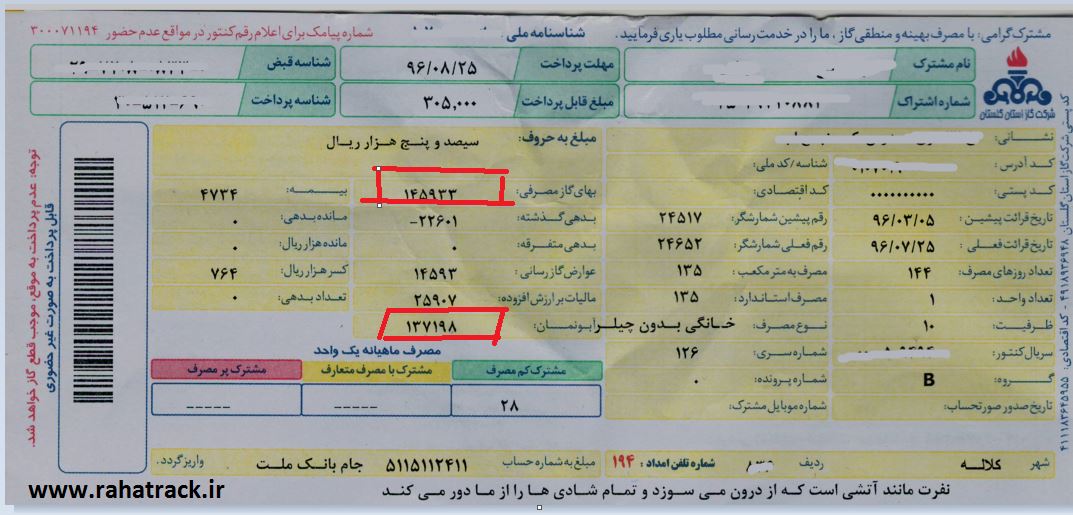 مشترک گرامی: با مصرف بهینه و منطقی گاز، ما را در خدمت رسانی مطلوب یاری فرمایید.
شناسنامه ملی:
شماره پیامک برای اعلام رقم کنتور در مواقع عدم حضور ۳۰۰۰۷۱۱۹۴
شرکت گاز استان گلستان
نام مشترک
مهلت پرداخت ۹۶/۰۸/۲۵
شناسه قبض
شماره اشتراک
مبلغ قابل پرداخت ۳۰۵,۰۰۰
شناسه پرداخت
نشانی:
کد آدرس:
شناسه/کد ملی:
کد پستی: ۰۰۰۰۰۰۰۰۰۰
کد اقتصادی:
تاریخ قرائت پیشین: ۹۶/۰۳/۰۵
رقم پیشین شمارشگر: ۲۴۵۱۷
تاریخ قرائت فعلی: ۹۶/۰۷/۲۵
رقم فعلی شمارشگر: ۲۴۶۵۲
تعداد روزهای مصرف: ۱۴۴
مصرف به متر مکعب: ۱۳۵
تعداد واحد: ۱
مصرف استاندارد: ۱۳۵
ظرفیت: ۱۰
نوع مصرف: خانگی بدون چیلر
سریال کنتور:
شماره سری: ۱۲۶
گروه: B
شماره پرونده: ۰
تاریخ صدور صورتحساب:
شماره موبایل مشترک:
مبلغ به حروف: سیصد و پنج هزار ریال
بهای گاز مصرفی: ۱۴۵۹۳۳
بیمه: ۴۷۳۴
بدهی گذشته: -۲۲۶۰۱
مانده بدهی: ۰
بدهی متفرقه: ۰
مانده هزار ریال: ۰
عوارض گاز رسانی: ۱۴۵۹۳
کسر هزار ریال: ۷۶۴
مالیات بر ارزش افزوده: ۲۵۹۰۷
تعداد بدهی: ۰
آبونمان: ۱۳۷۱۹۸
مصرف ماهیانه یک واحد
مشترک کم مصرف
مشترک با مصرف متعارف
مشترک پر مصرف
۲۸
-----
-----
شهر کلاله
ردیف
شماره تلفن امداد: ۱۹۴
مبلغ به شماره حساب ۵۱۱۵۱۱۲۴۱۱ جام بانک ملت واریز گردد.
نفرت مانند آتشی است که از درون می سوزد و تمام شادی ها را از ما دور می کند
توجه: عدم پرداخت به موقع، موجب قطع گاز خواهد شد.
قابل پرداخت به صورت غیر حضوری
www.rahatrack.ir